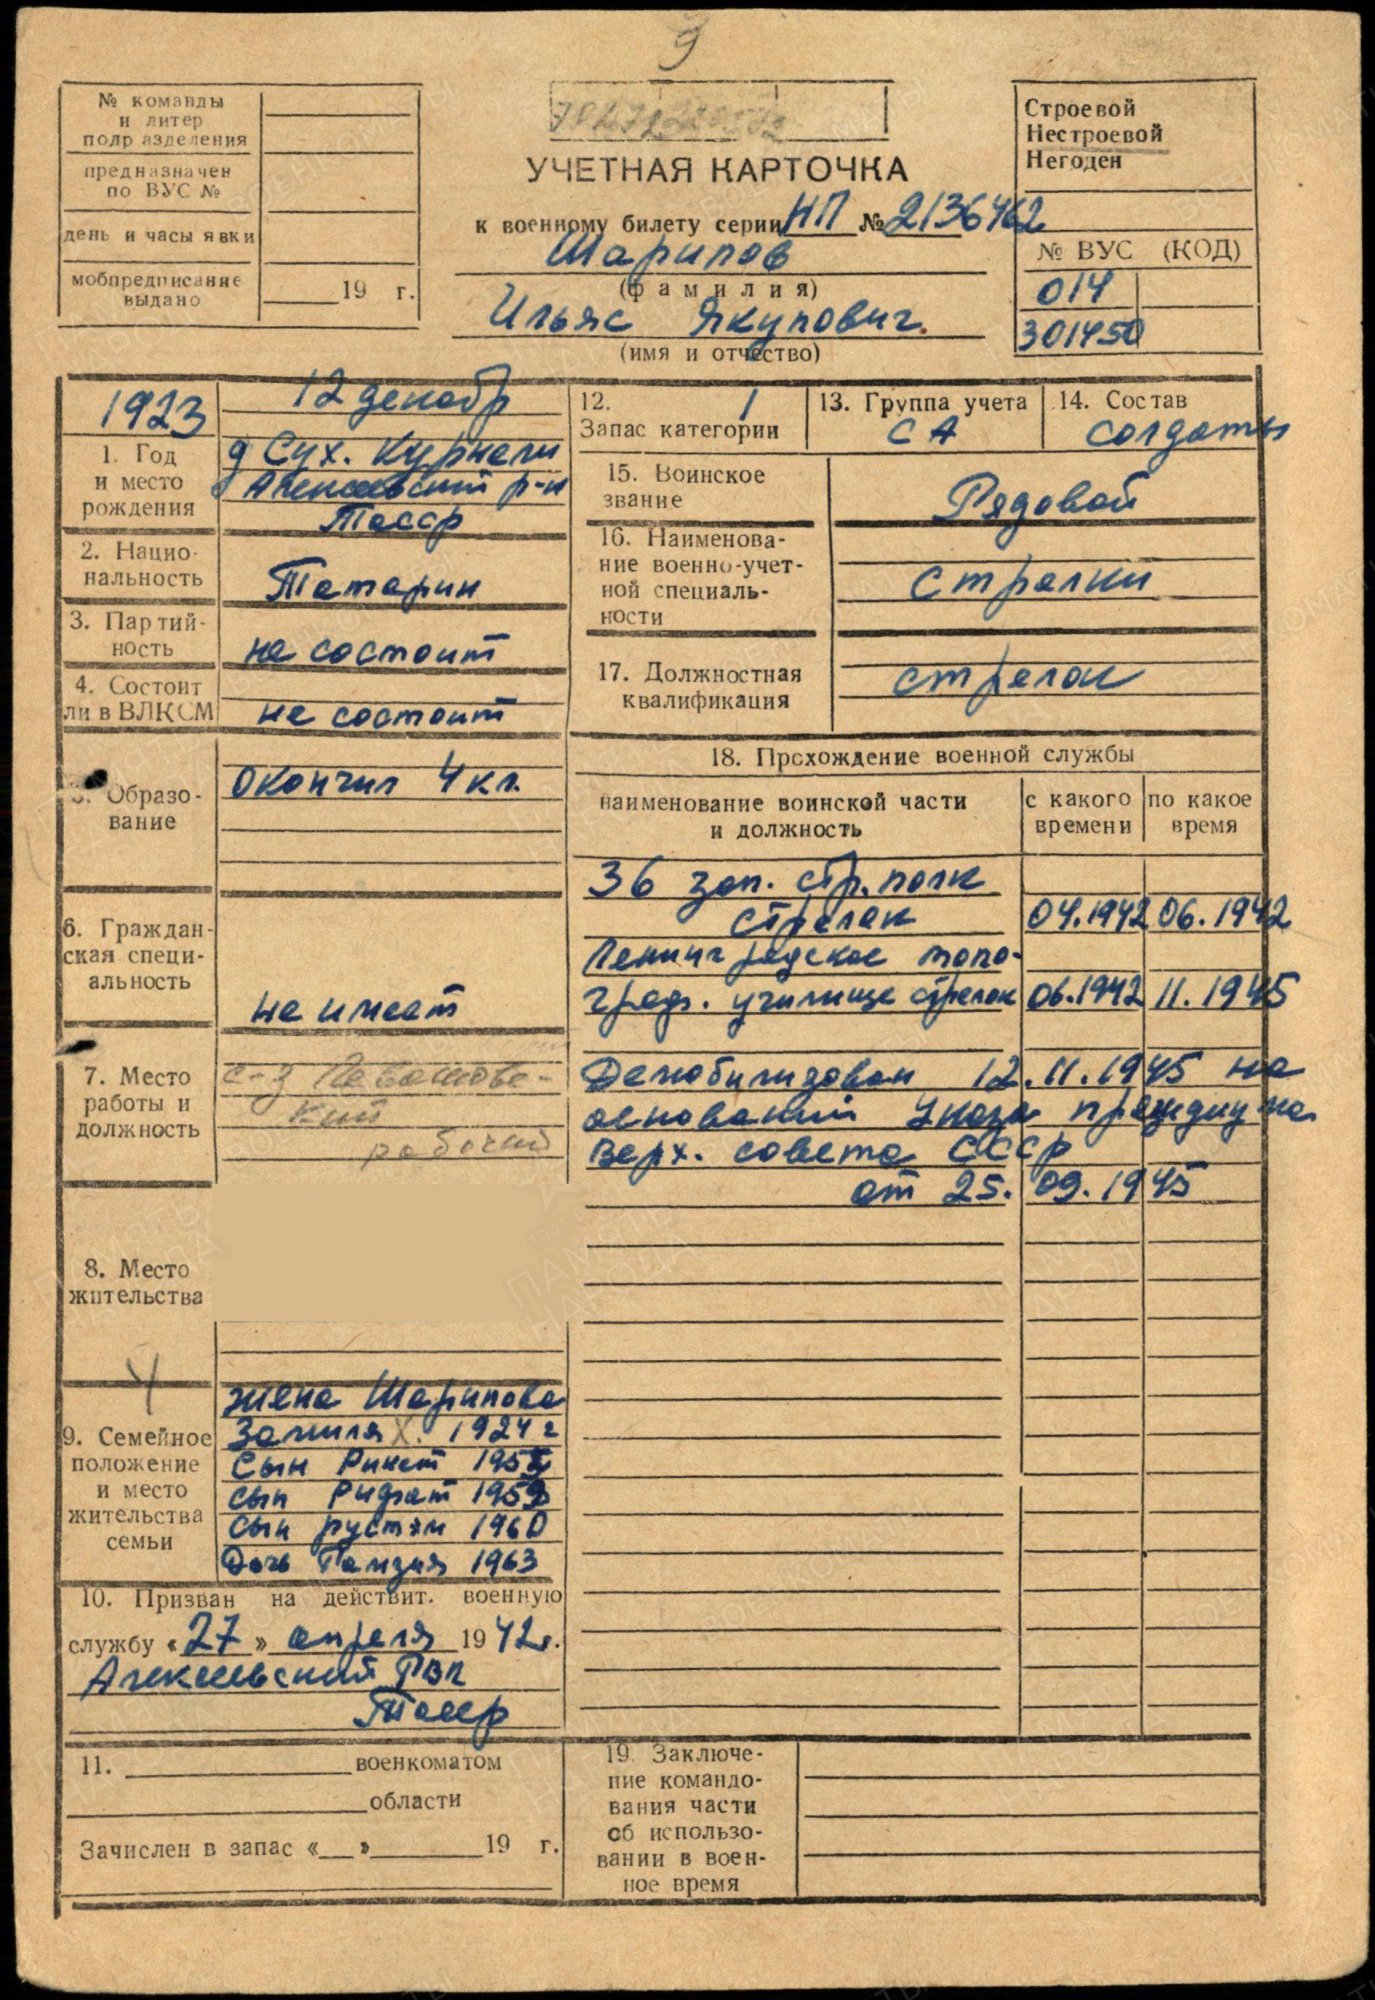 9
№ команды
и литер
подразделения
предназначен
по ВУС №
день и часы явки
мобпредписание
выдано
19 г.
УЧЕТНАЯ КАРТОЧКА
к военному билету серии НП № 2136462
Шарипов
(фамилия)
Ильяс Якупович.
(имя и отчество)
Строевой
Нестроевой
Негоден
№ ВУС (КОД)
014
301450
1923
1. Год
и место
рождения
12 декабр
д Сух. Курнали
Алексеевский р-н
Тасср
2. Нацио-
нальность
Татарин
3. Партий-
ность
не состоит
4. Состоит
ли в ВЛКСМ
не состоит
5. Образо-
вание
окончил 4 кл.
6. Граждан-
ская специ-
альность
не имеет
7. Место
работы и
должность
с-з
кий
рабочий
8. Место
жительства
9. Семейное
положение
и место
жительства
семьи
жена Шарипова
1924 г
Сын 195
сын Рифат 1959
Сын рустям 1960
Дочь 1963
10. Призван на действит. военную
службу «27» апреля 1942г.
Алексеевский РВК
Тасср
11. военкоматом
области
Зачислен в запас « » 19 г.
12. 1
Запас категории
13. Группа учета
СА
14. Состав
солдаты
15. Воинское
звание
Рядовой
16. Наименова-
ние военно-учет-
ной специаль-
ности
стрелки
17. Должностная
квалификация
стрелок
18. Прохождение военной службы
наименование воинской части
и должность
с какого
времени
по какое
время
36 зап. стр. полк
стрелок 04.1942 06.1942
Ленинградское топо-
граф. училище стрелок 06.1942 11.1945
Демобилизован 12.11.1945 на
основании Указа президиума
Верх. совета СССР
от 25.09.1945
19. Заключе-
ние командо-
вания части
об использо-
вании в воен-
ное время